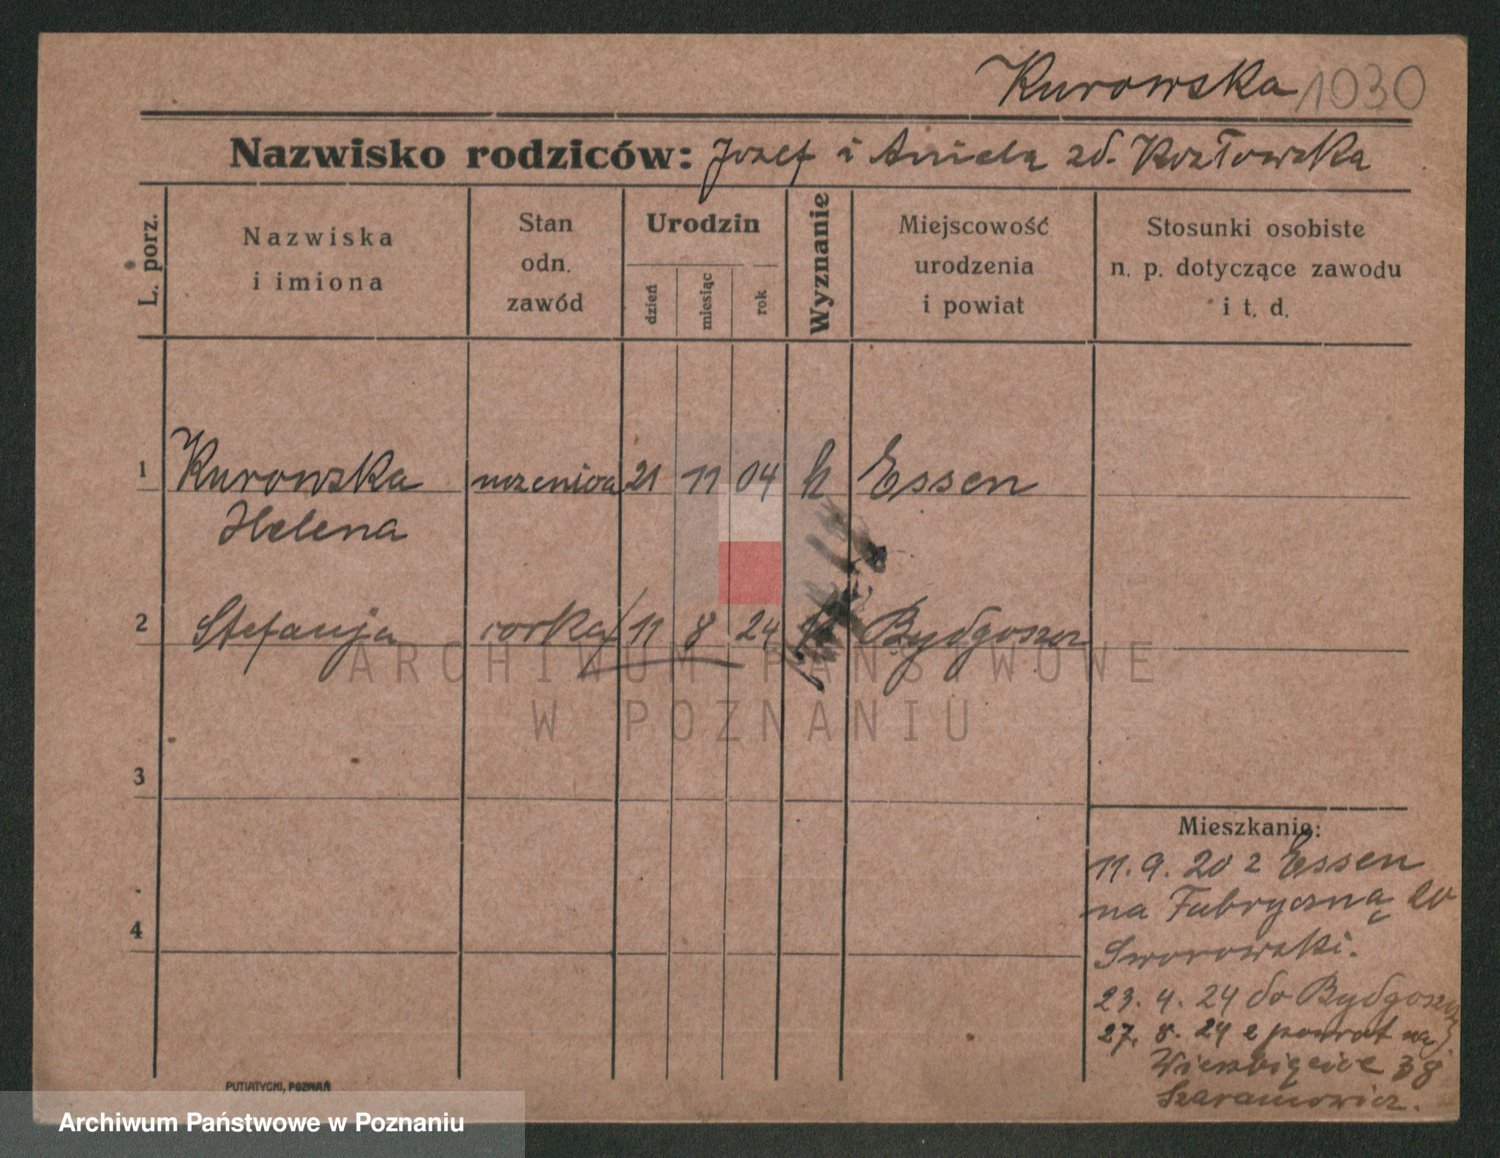 Kurowska 1030
Nazwisko rodziców: Jozef i Aniela zd. Kozłowska
L. porz.
Nazwiska
i imiona
Stan
odn.
zawód
Urodzin
dzień
miesiąc
rok
Wyznanie
Miejscowość
urodzenia
i powiat
Stosunki osobiste
n. p. dotyczące zawodu
i t. d.
1 Kurowska uczenica 21 11 04 k Essen
Helena
2 Stefanja corka 11 8 24 Bydgoszcz
ARCHIWUM PAŃSTWOWE
W POZNANIU
3
4
Mieszkanie:
11. 9. 20 z Essen
na Fabryczną 20
Sworowski.
23. 4. 24 do Bydgoszcz
27. 8. 24 z powrot na
Wierzbięcice 38
Szaramowicz.
PUTIATYCKI, POZNAŃ
Archiwum Państwowe w Poznaniu